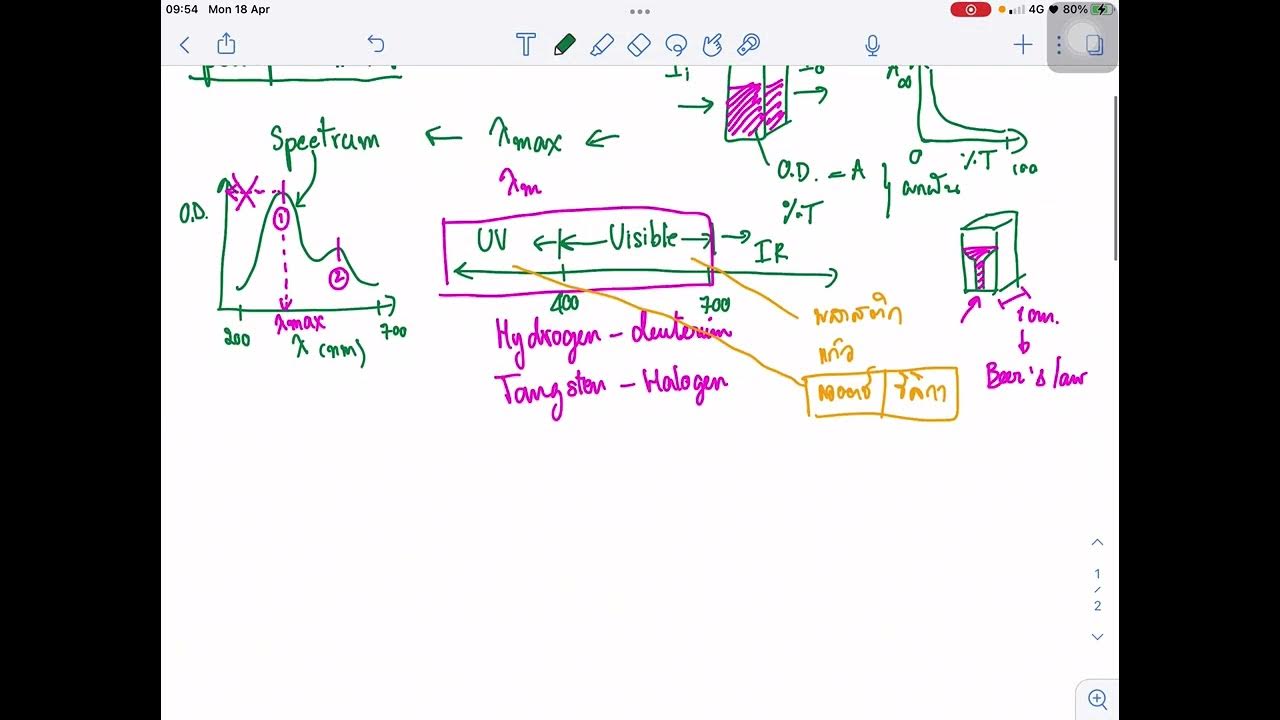 09:54 Mon 18 Apr
4G 80%
Ii
Io
A
∞
0 %T 100
Spectrum ← λmax ←
λm
O.D. = A
%T
ผกผัน
O.D.
1
2
λmax
200 700
λ (nm)
UV Visible IR
400 700
Hydrogen - deuterium
Tangsten - Halogen
พลาสติก
แก้ว
ควอตซ์ ซิลิกา
1 cm.
Beer's law
1
2